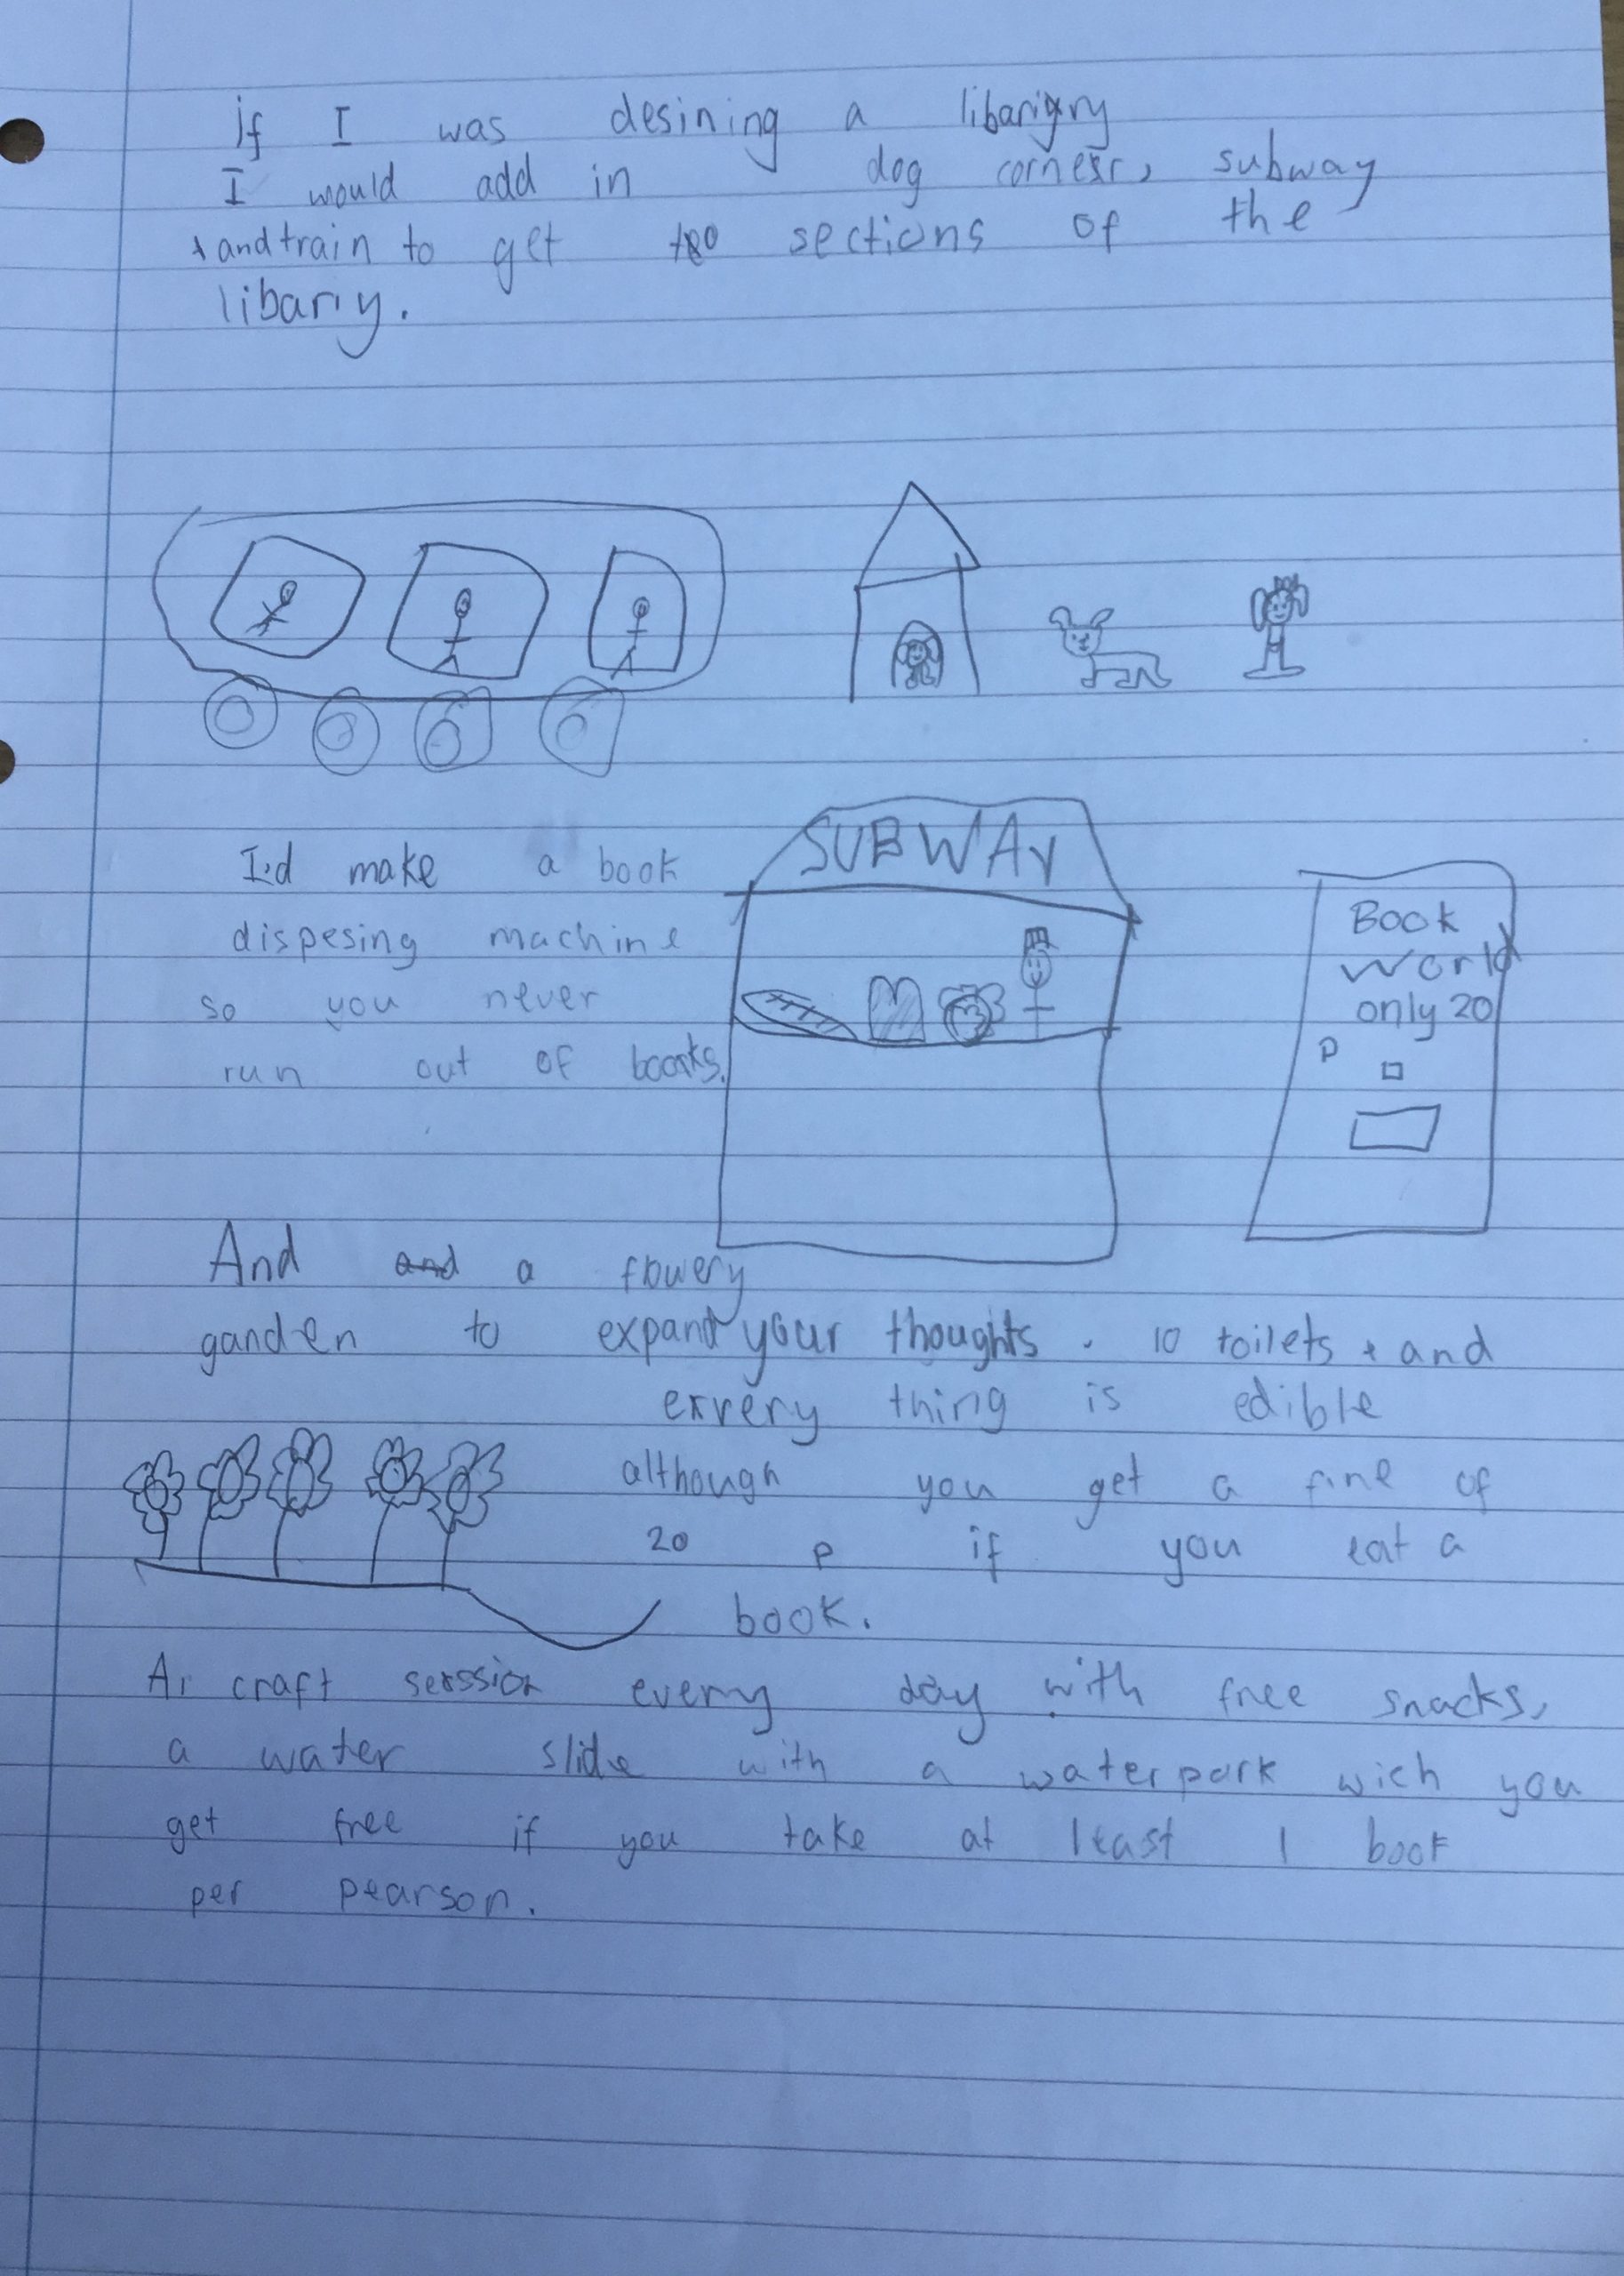 If I was desining a libariry
I would add in dog corner, subway
+ and train to get to sections of the
libariy.
I'd make a book
dispesing machine
so you never
run out of books.
SUBWAY
Book
World
only 20
P
And and a flowery
ganden to expand your thoughts. 10 toilets + and
every thing is edible
although you get a fine of
20 p if you eat a
book.
A craft session every day with free snacks,
a water slide with a waterpark wich you
get free if you take at least 1 book
per pearson.